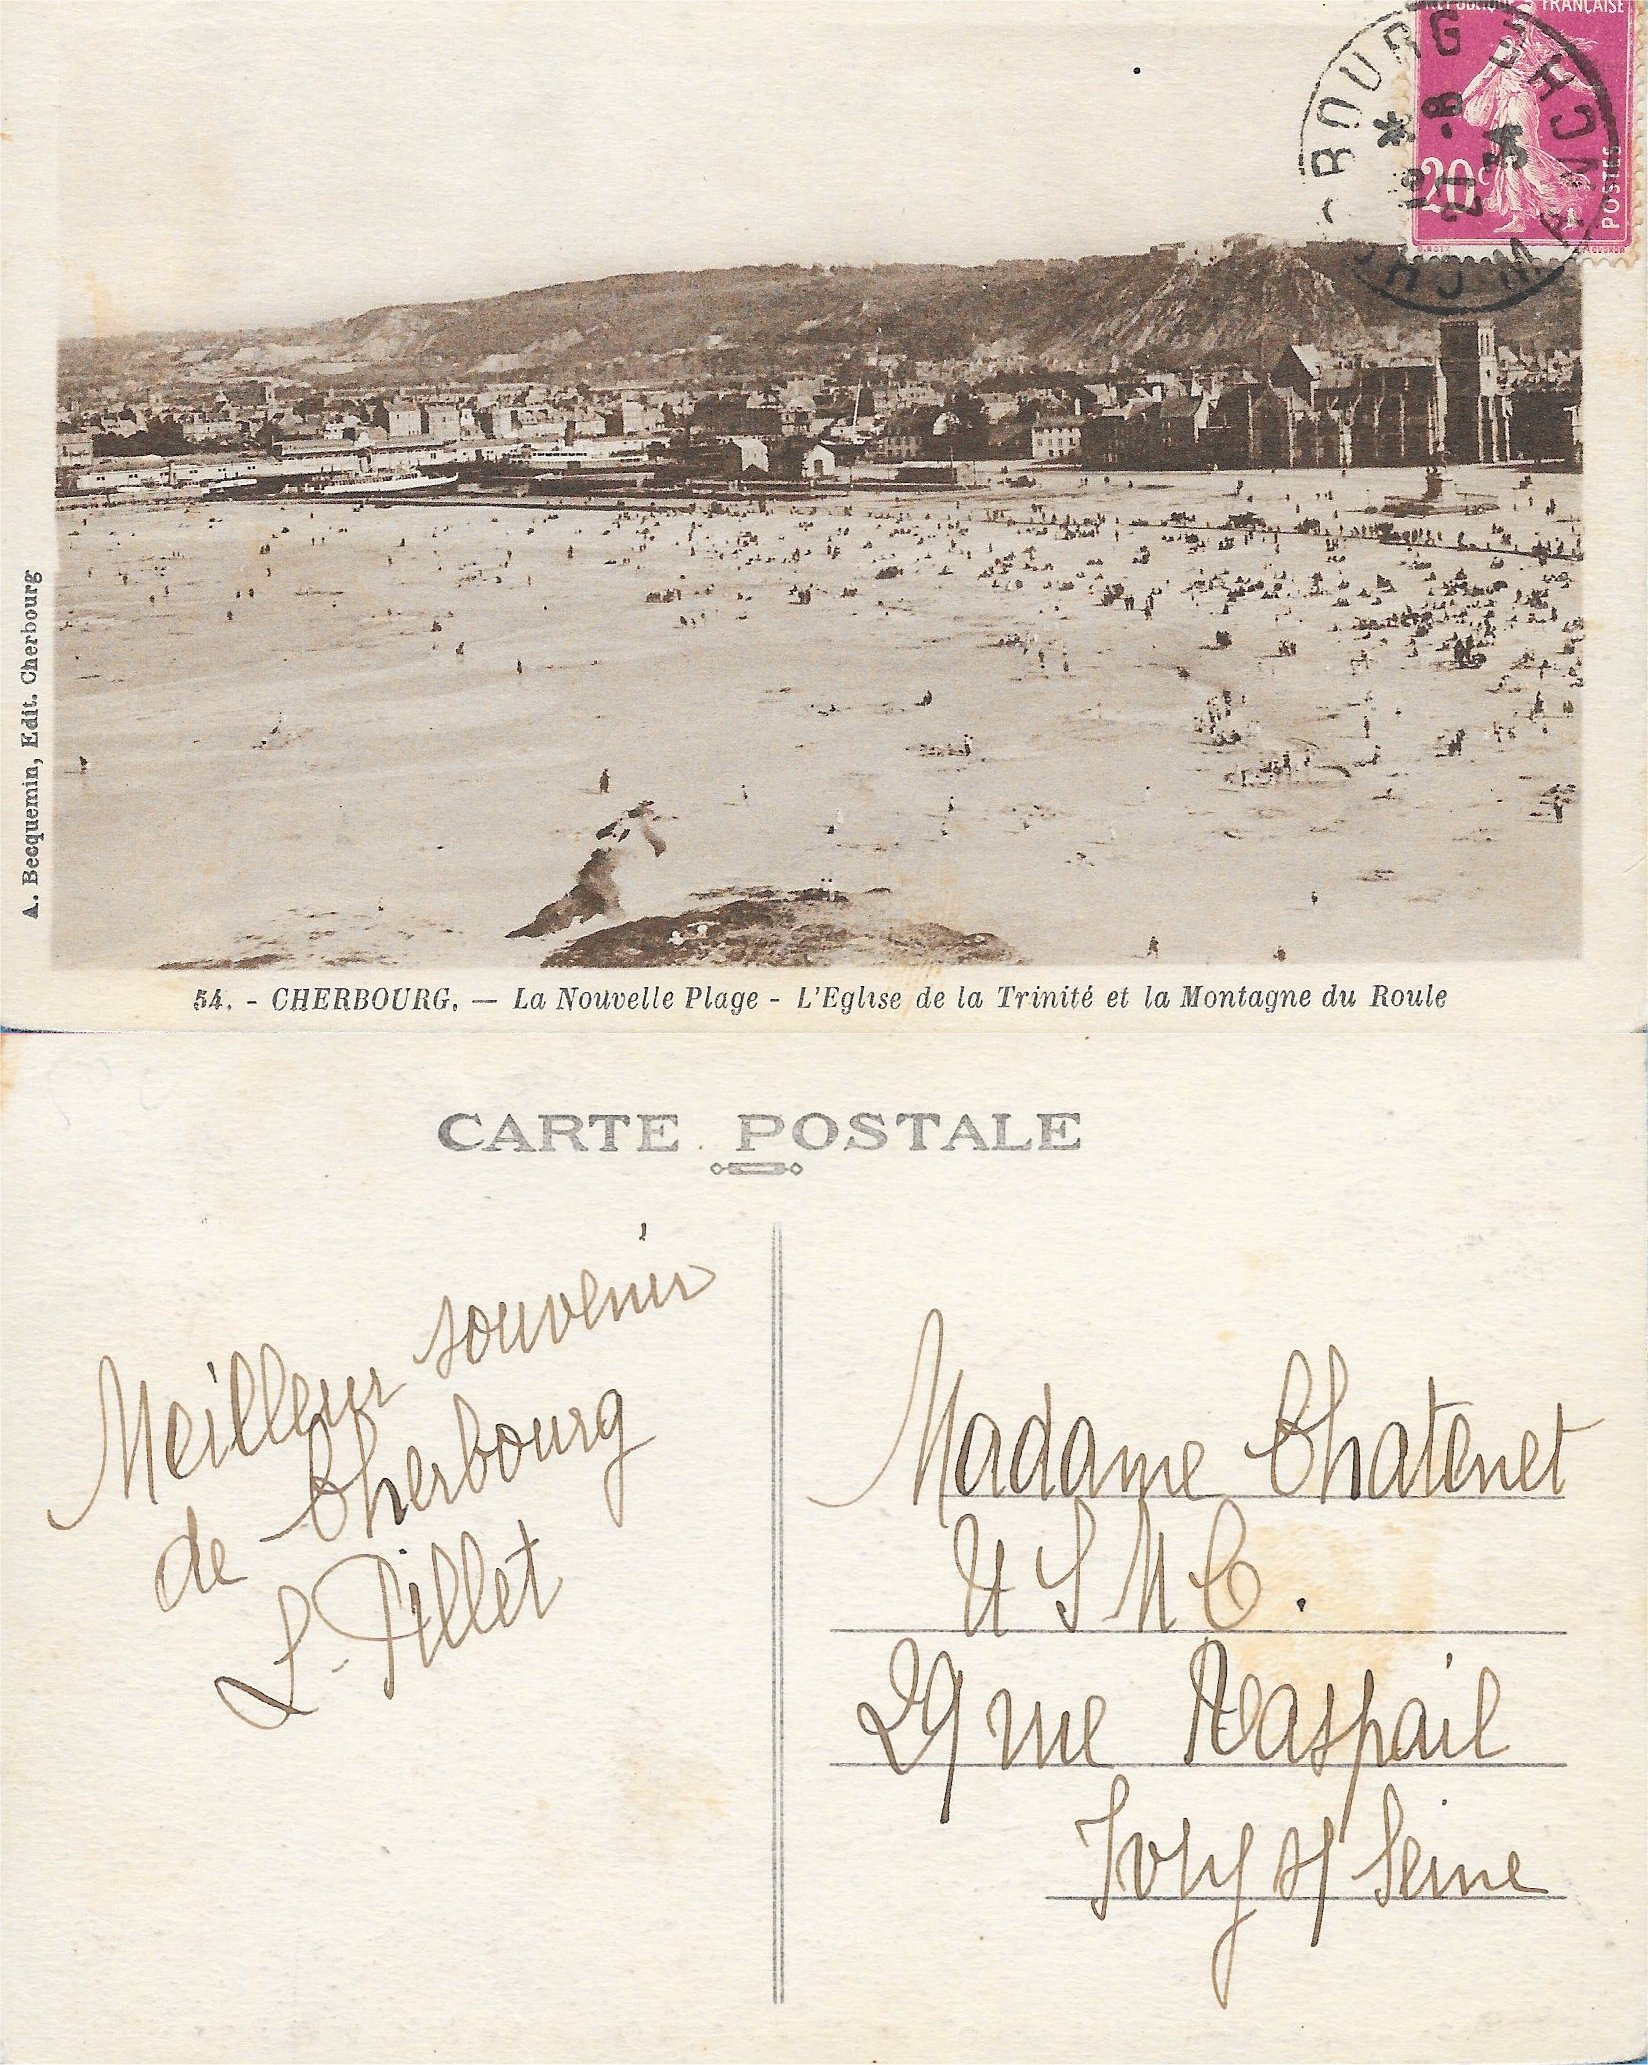 RÉPUBLIQUE FRANÇAISE
20c
POSTES
CHERBOURG
MANCHE
* 19 -8
34
A. Becquemin, Edit. Cherbourg
54. - CHERBOURG. — La Nouvelle Plage - L'Eglise de la Trinité et la Montagne du Roule
CARTE POSTALE
Meilleur souvenir
de Cherbourg
L. Pillet
Madame Chatenet
U S M C.
29 rue Raspail
Ivry s/ Seine